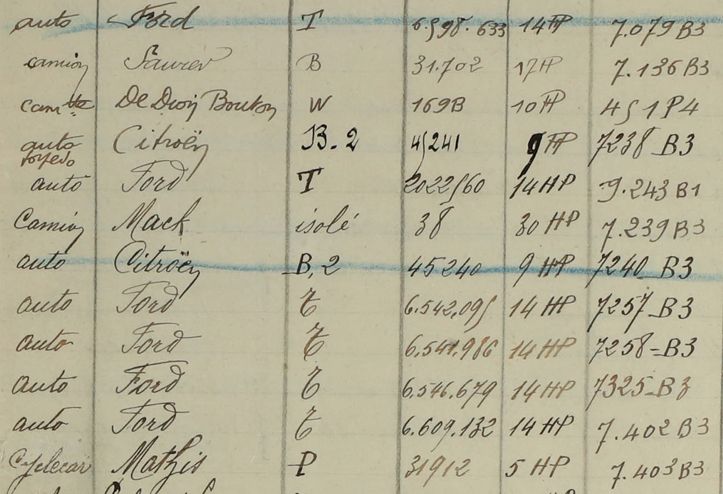 auto Ford T 6.598.633 14 HP 7.079 B3
camion Saurer B 31.702 17 HP 7.136 B3
camtte De Dion Bouton W 169B 10 HP 451 P4
auto torpedo Citroën B-2 45241 9 HP 7238 B3
auto Ford T 2022560 14 HP 9.243 B1
Camion Mack isolé 38 30 HP 7.239 B3
auto Citroën B.2 45240 9 HP 7240 B3
auto Ford T 6.542.095 14 HP 7257 B3
auto Ford T 6.541.986 14 HP 7258-B3
auto Ford T 6.546.679 14 HP 7325-B3
auto Ford T 6.609.132 14 HP 7.402 B3
Cyclecar Mathis P 31912 5 HP 7.403 B3